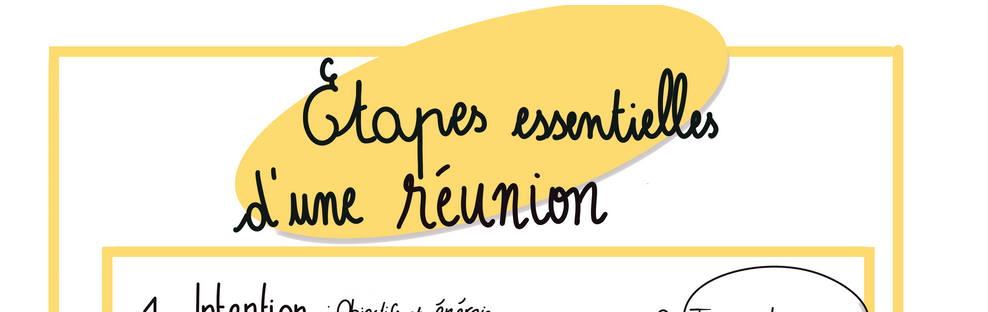 Étapes essentielles
d'une réunion
1. Intention : Objectifs et énergie